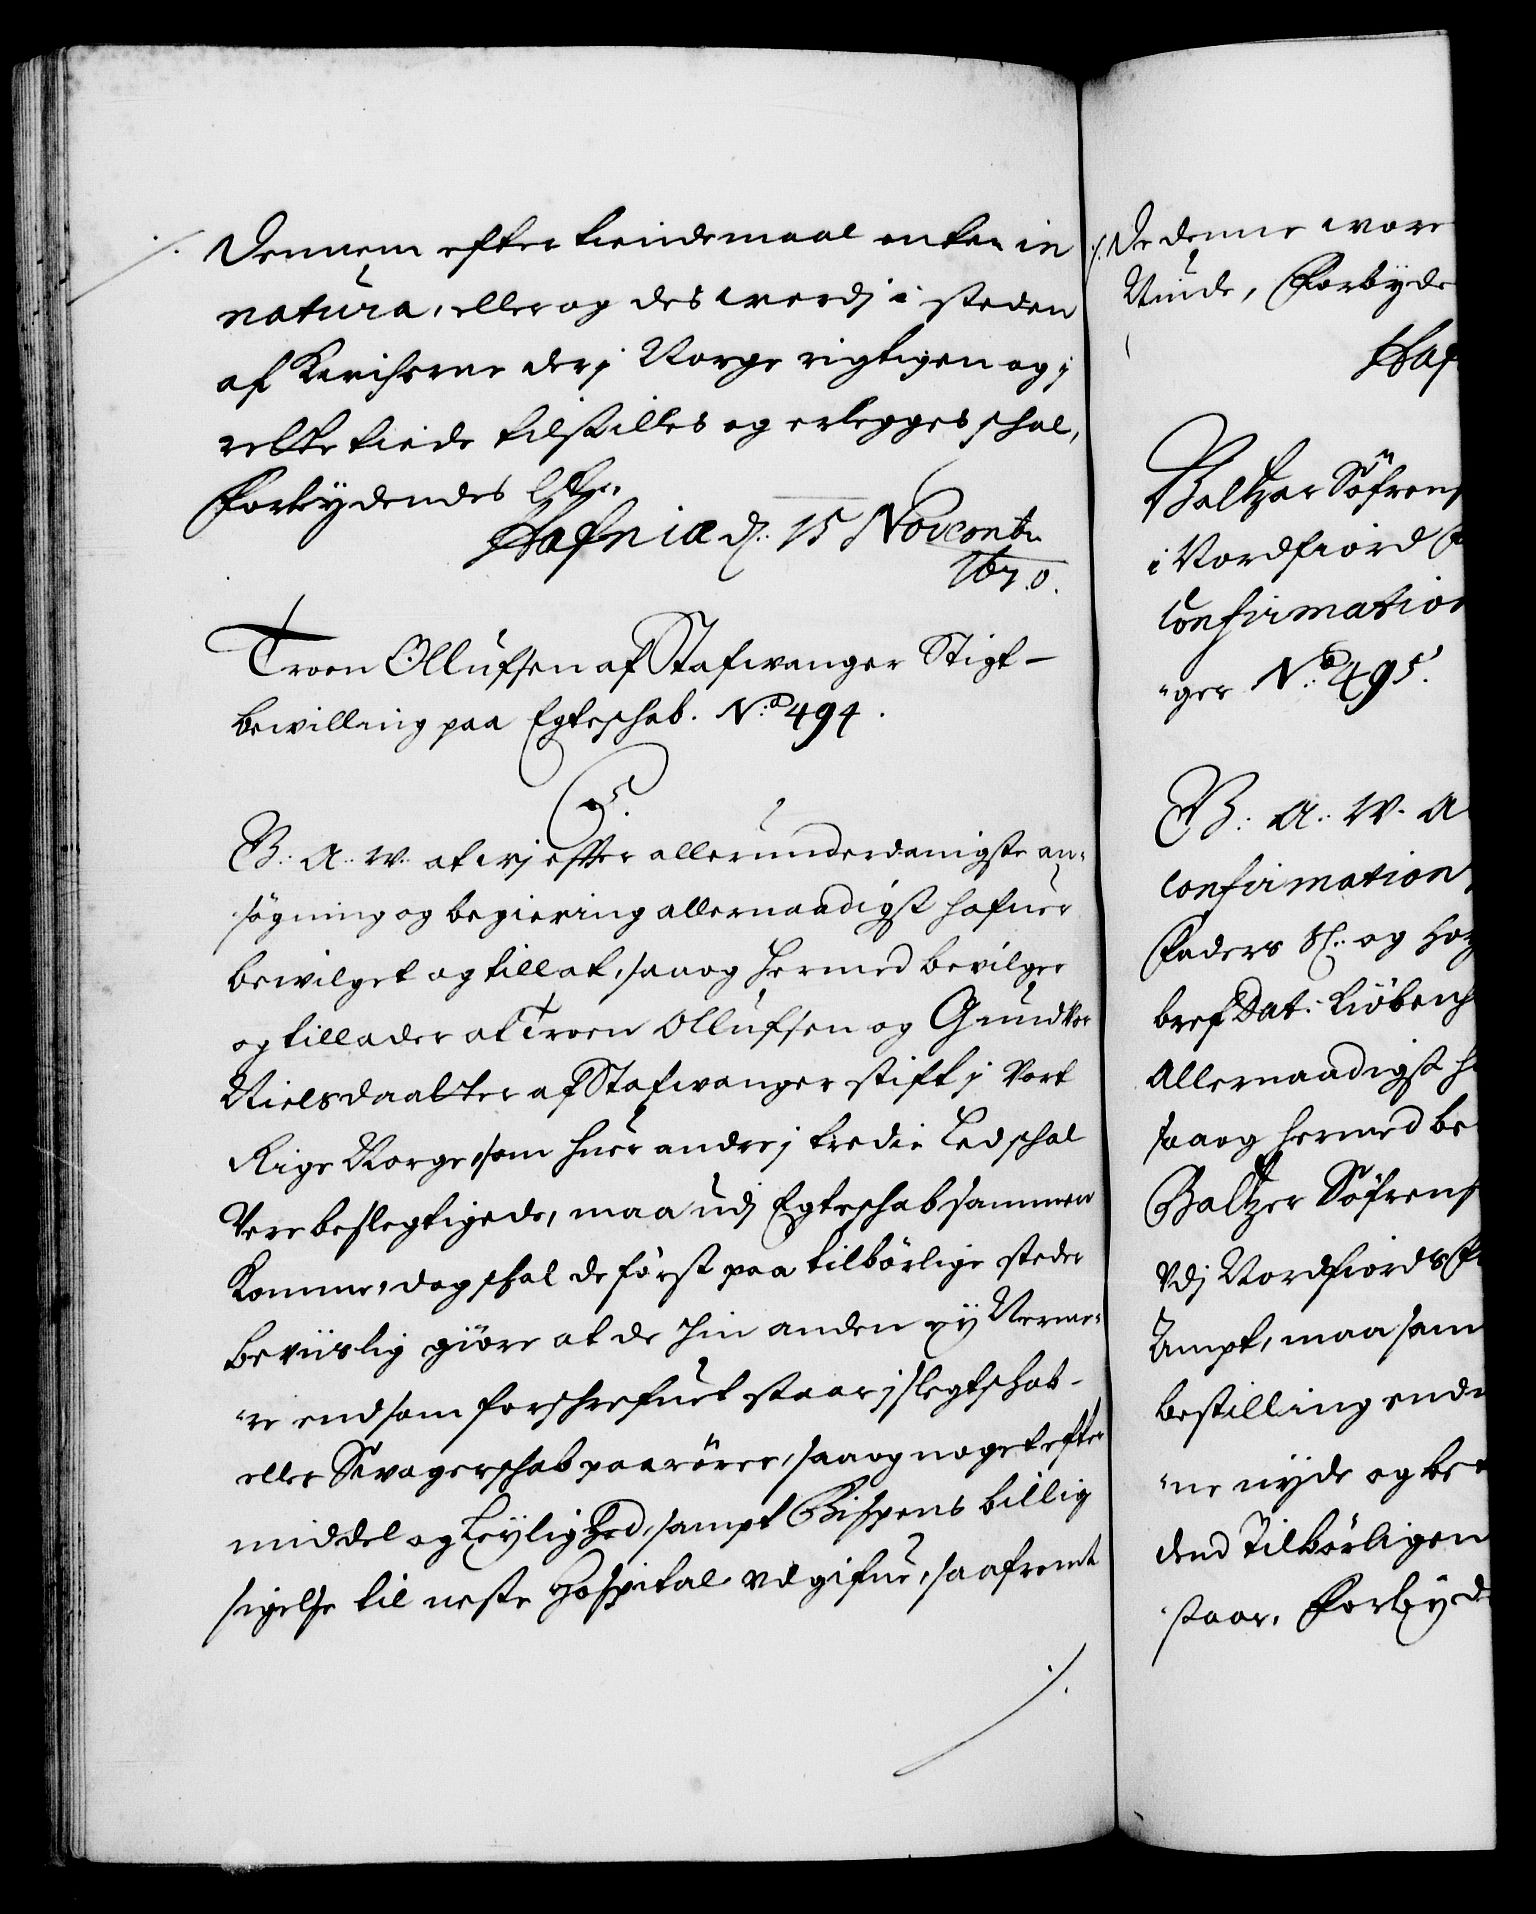 ./. Dennem efter Kiendemaal enten in
natura, eller og des werdj i steden
af Kircherne der j Norge rigtigen og j
rette tiide tilstilles og erlegges schal,
Forbydendes etc.
Hafniæ d. 15 Novembr.
1670.
Troen Ollufsen af Stafwanger Stigt
bewilling paa Egteschab. No. 494.
C5.
G.: A.: W. at wj efter allerunderdanigste an-
søgning og begiering allernaadigst hafuer
bewilget og tillat, saa og hermed bevilger
og tillader at Troen Ollufsen og Gundtor
Nielsdaatter af Stafwanger stift j Vort
Rige Norge, som huer andre j tredie Led schal
Vere beslegtigede, maa udj Egteschab sammen
Komme, dog schal de først paa tilbørlige steder
beviislig giøre at de hin anden ey Nerme-
re end som forschrefuet staar j slegtschab
eller Svogerschab paarører, saa og noget efter
middel og Leylighed, sampt Bispens billig
sigelse til neste Hospital udgifue, saafremt
./.
./. De denne wore
Niude, Forbyde
Haf
Baltzar Søfrens
i Nordfiord
Confirmation
ger No. 495.
G.: A.: W. A
confirmation
Faders Sl. og Hoy
bref Dat. Kiøbenh
Allernaadigst h
saa og hermed be
Baltzer Søfrens
Vdj Nordfiords
Ampt, maa sam
bestilling end
ne nyde og be
dend Tilbørligen
staar, Forbyd